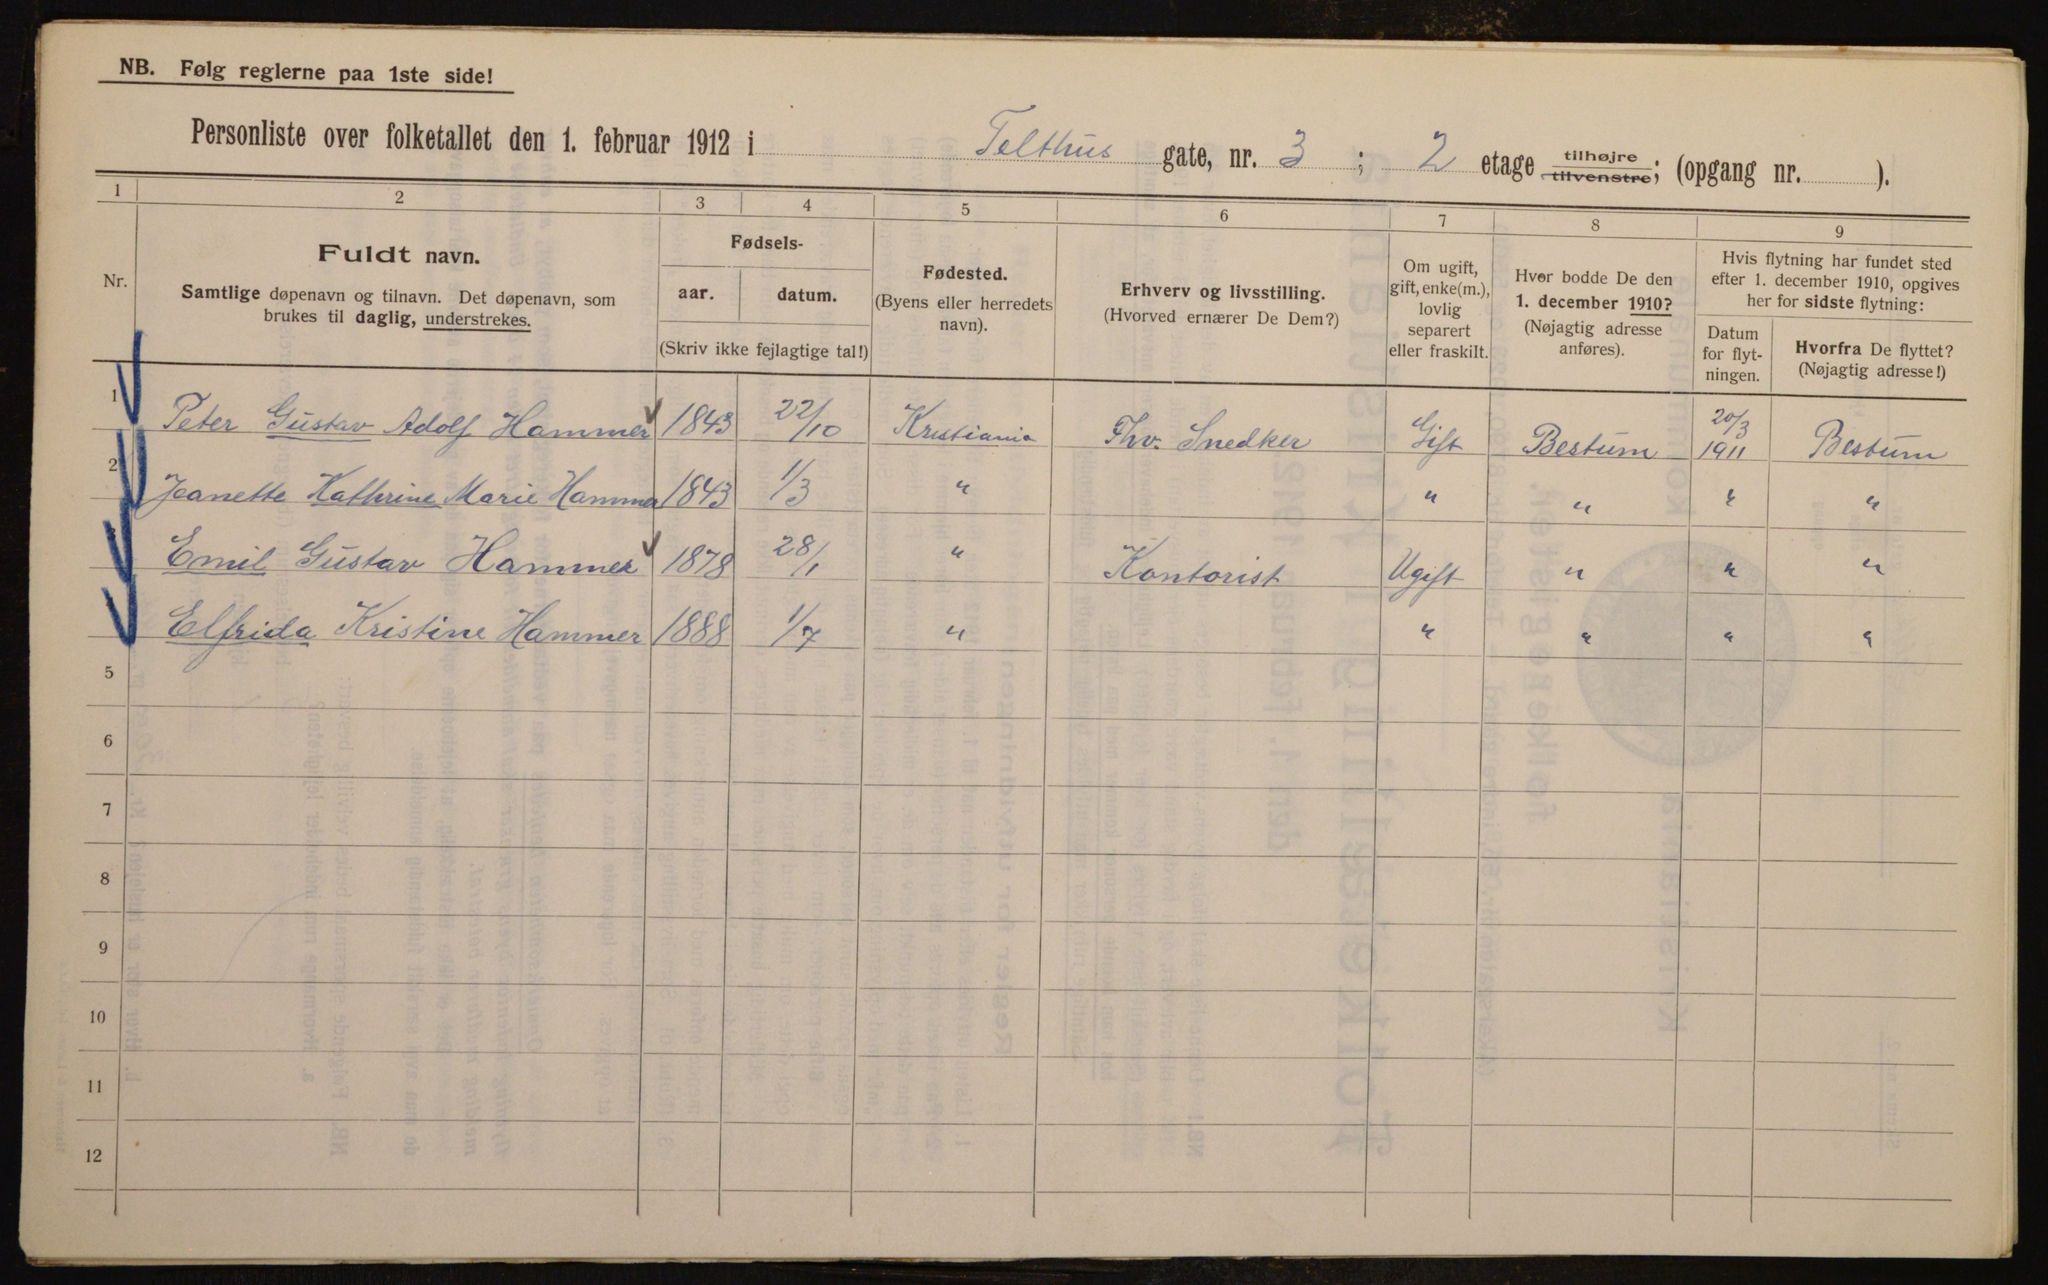 NB. Følg reglerne paa 1ste side!
Personliste over folketallet den 1. februar 1912 i Telthus gate, nr. 3 ; 2 etage tilhøjre tilvenstre; (opgang nr. ).
1 2 3 4 5 6 7 8 9
Nr.
Fuldt navn.
Samtlige døpenavn og tilnavn. Det døpenavn, som
brukes til daglig, understrekes.
Fødsels-
aar. datum.
(Skriv ikke fejlagtige tal!)
Fødested.
(Byens eller herredets
navn).
Erhverv og livsstilling.
(Hvorved ernærer De Dem?)
Om ugift,
gift, enke(m.),
lovlig
separert
eller fraskilt.
Hvor bodde De den
1. december 1910?
(Nøjagtig adresse
anføres).
Hvis flytning har fundet sted
efter 1. december 1910, opgives
her for sidste flytning:
Datum
for flyt-
ningen.
Hvorfra De flyttet?
(Nøjagtig adresse!)
1 Peter Gustav Adolf Hammer 1843 22/10 Kristiania Fhv. Snedker Gift Bestum 20/3 1911 Bestum
2 Jeanette Kathrine Marie Hammer 1843 1/3 " " " " "
Emil Gustav Hammer 1878 28/1 " Kontorist Ugift " " "
Elfrida Kristine Hammer 1888 1/7 " " " " "
5
6
7
8
9
10
11
12